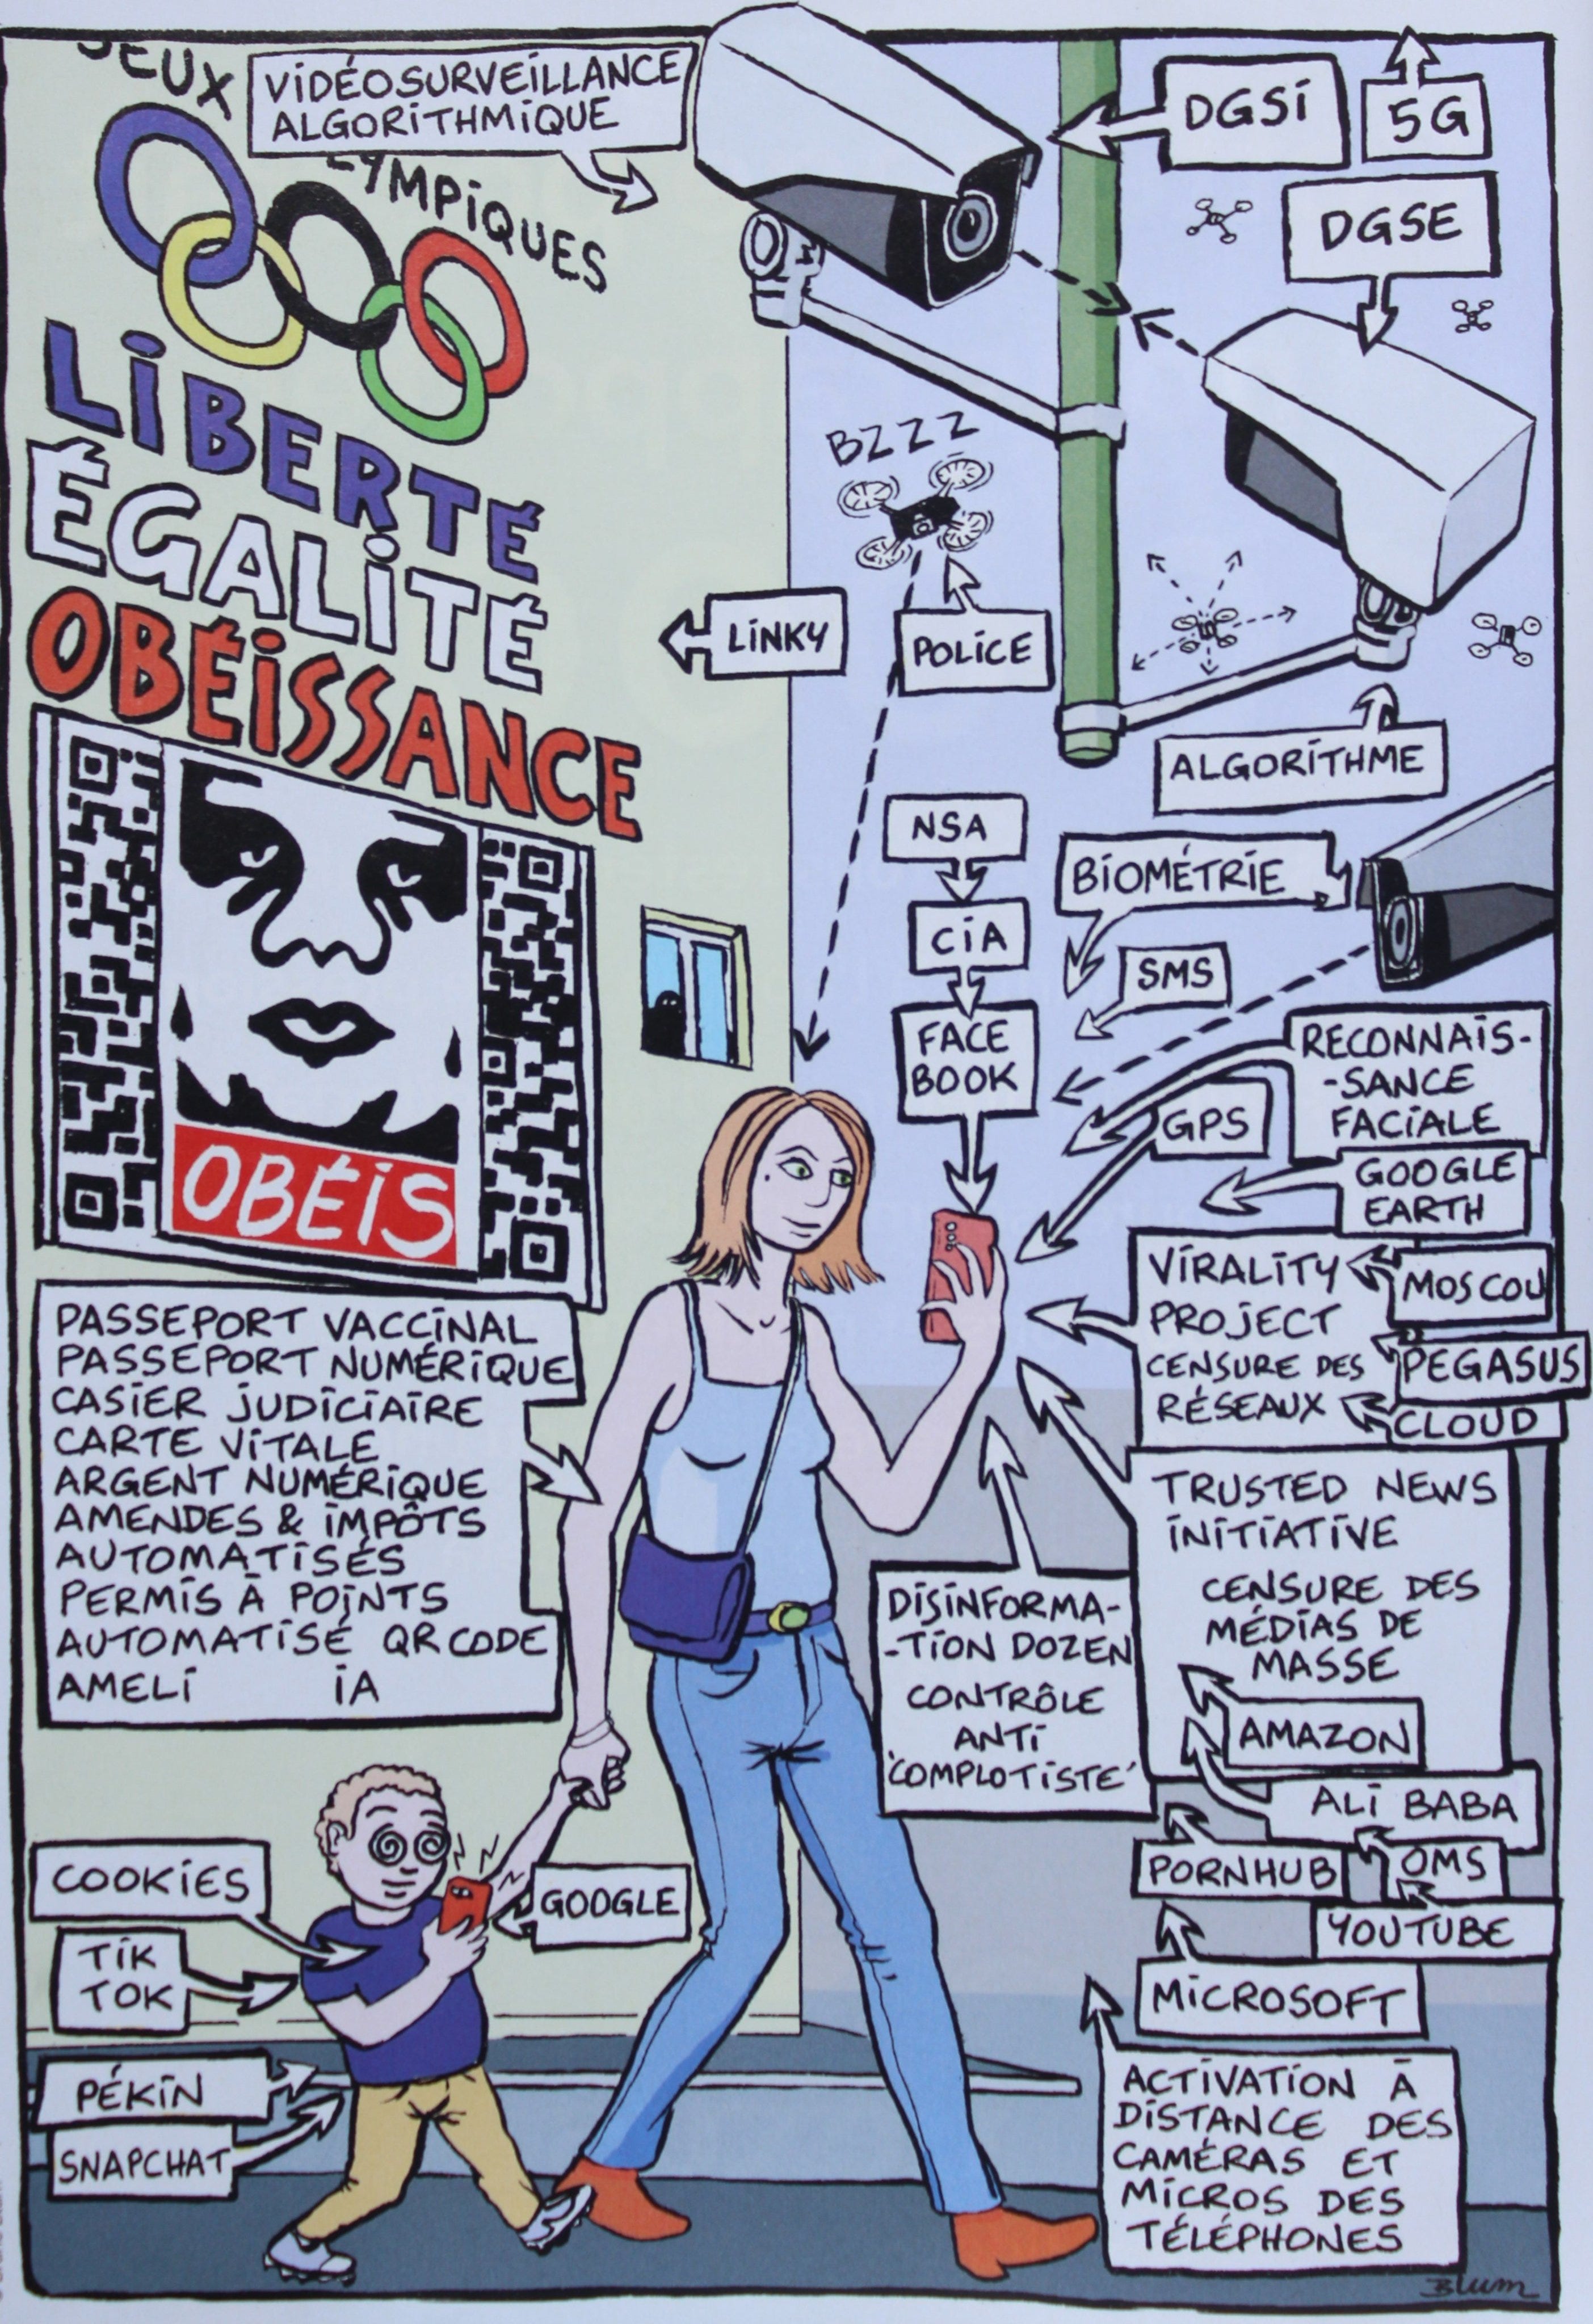 JEUX
VIDÉOSURVEILLANCE
ALGORITHMIQUE
LYMPIQUES
DGSI
5G
DGSE
LIBERTÉ
ÉGALITÉ
OBÉISSANCE
BZZZ
LINKY
POLICE
ALGORITHME
NSA
CIA
FACE
BOOK
BIOMÉTRIE
SMS
RECONNAIS-
-SANCE
FACIALE
GPS
GOOGLE
EARTH
OBÉIS
VIRALITY
PROJECT
CENSURE DES
RÉSEAUX
MOSCOU
PEGASUS
CLOUD
PASSEPORT VACCINAL
PASSEPORT NUMÉRIQUE
CASIER JUDICIAIRE
CARTE VITALE
ARGENT NUMÉRIQUE
AMENDES & IMPÔTS
AUTOMATISÉS
PERMIS À POINTS
AUTOMATISÉ QR CODE
AMELI IA
TRUSTED NEWS
INITIATIVE
CENSURE DES
MÉDIAS DE
MASSE
DISINFORMA-
-TION DOZEN
CONTRÔLE
ANTI
'COMPLOTISTE'
AMAZON
ALI BABA
PORNHUB
OMS
YOUTUBE
MICROSOFT
COOKIES
GOOGLE
TIK
TOK
PÉKIN
SNAPCHAT
ACTIVATION À
DISTANCE DES
CAMÉRAS ET
MICROS DES
TÉLÉPHONES
Blum